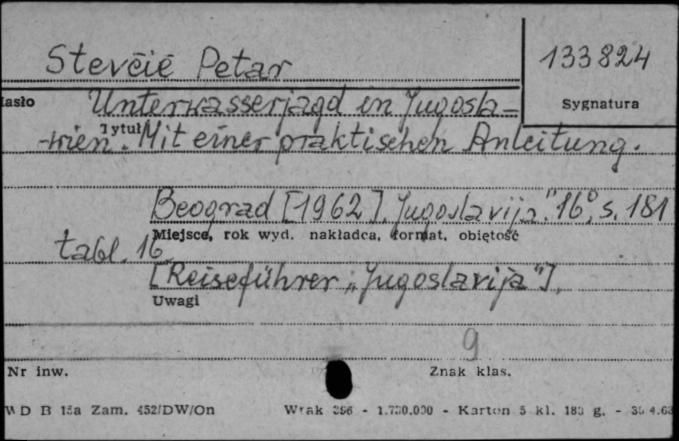 Stevčić Petar
133824
Hasło
Sygnatura
Unterwasserjagd in Jugosla-
Tytuł
wien. Mit einer praktischen Anleitung.
Beograd [1962]. "Jugoslavija." 16°, s. 181
Miejsce, rok wyd. nakładca, format, obiętość
tabl. 16
[Reiseführer „Jugoslavija"].
Uwagi
9
Nr inw.
Znak klas.
WD B 15a Zam. 452/DW/On
Wrak 396 - 1.700.000 - Karton 5 kl. 180 g. -